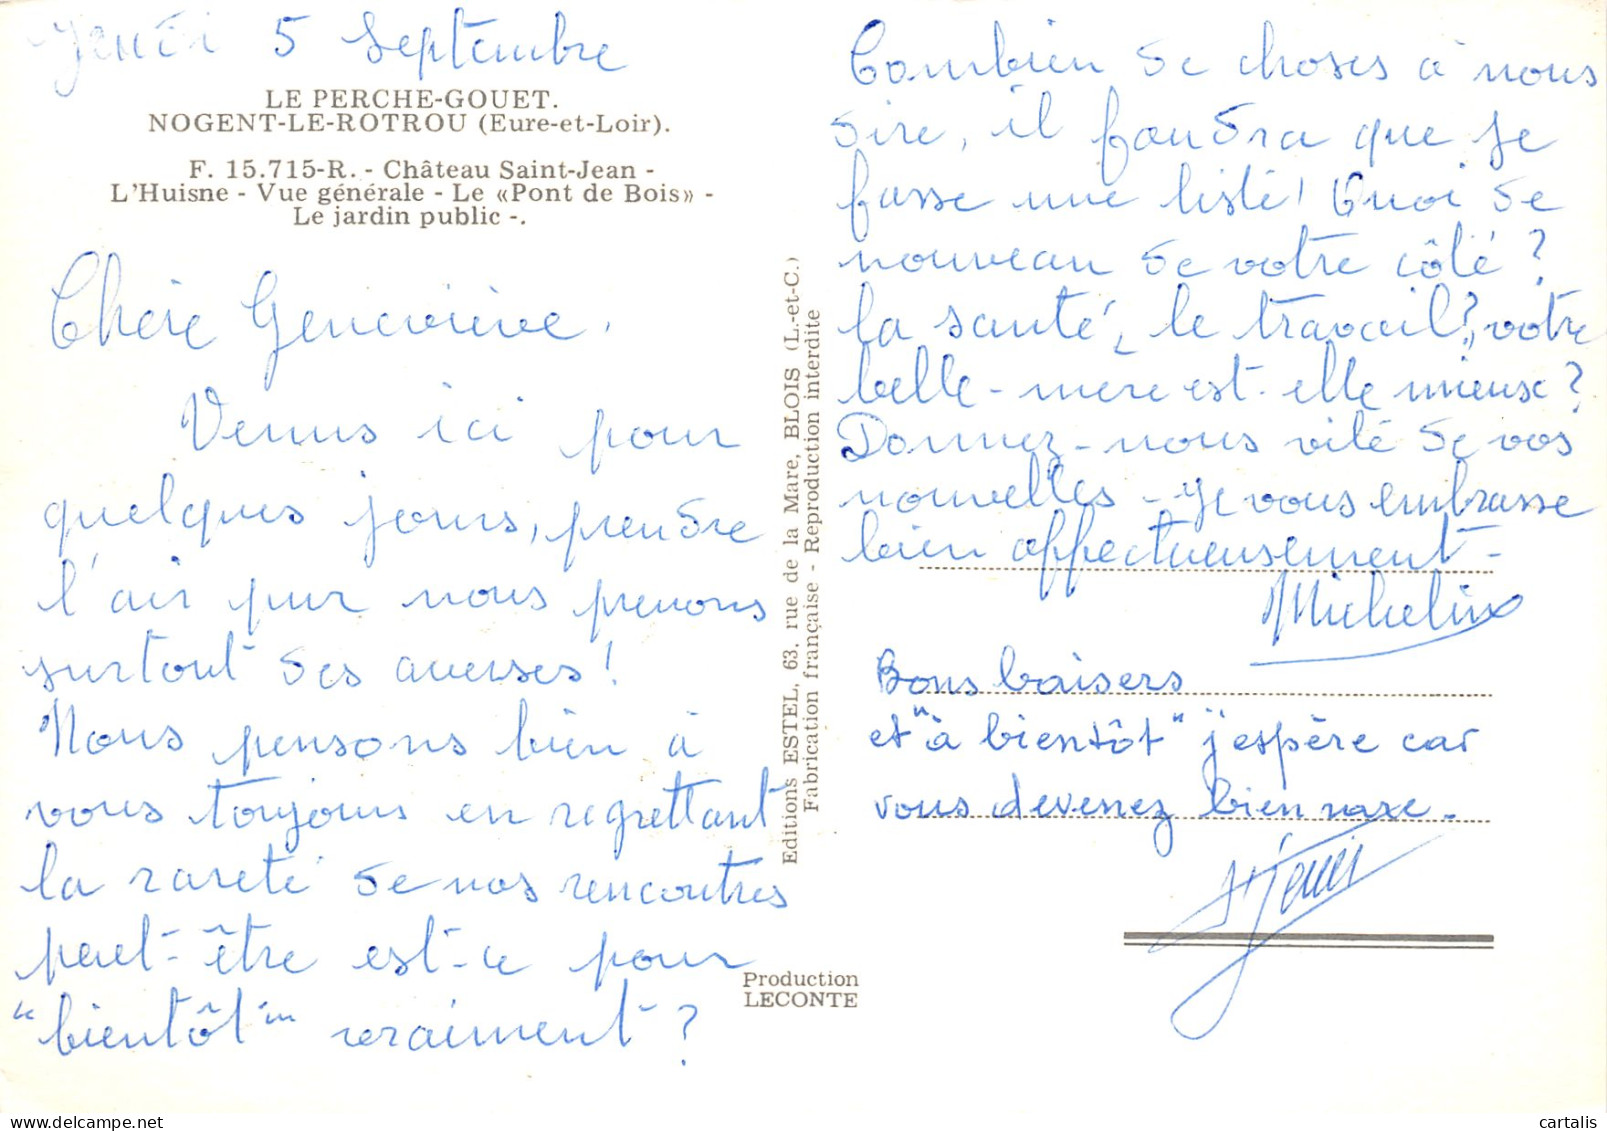 Jeudi 5 Septembre
LE PERCHE-GOUET.
NOGENT-LE-ROTROU (Eure-et-Loir).
F. 15.715-R. - Château Saint-Jean -
L'Huisne - Vue générale - Le «Pont de Bois» -
Le jardin public -.
Chère Geneviève,
Venus ici pour
quelques jours, prendre
l'air pur nous prenons
surtout des averses !
Nous pensons bien à
vous toujours en regrettant
la rareté de nos rencontres
peut-être est-ce pour
"bientôt" vraiment ?
Editions ESTEL, 63, rue de la Mare, BLOIS (L.-et-C.)
Fabrication française - Reproduction interdite
Production
LECONTE
Combien de choses à nous
dire, il faudra que je
fasse une liste ! Quoi de
nouveau de votre côté ?
la santé, le travail ?, votre
belle-mère est-elle mieux ?
Donnez-nous vite de vos
nouvelles - je vous embrasse
bien affectueusement -
Micheline
Bons baisers
et "à bientôt" j'espère car
vous devenez bien rare.